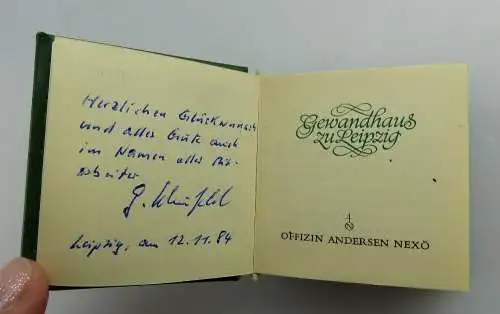 Herzlichen Glückwunsch
und alles Gute auch
im Namen aller Mit-
arbeiter
G.
Leipzig, am 12.11.84
Gewandhaus
zu Leipzig
OFFIZIN ANDERSEN NEXÖ